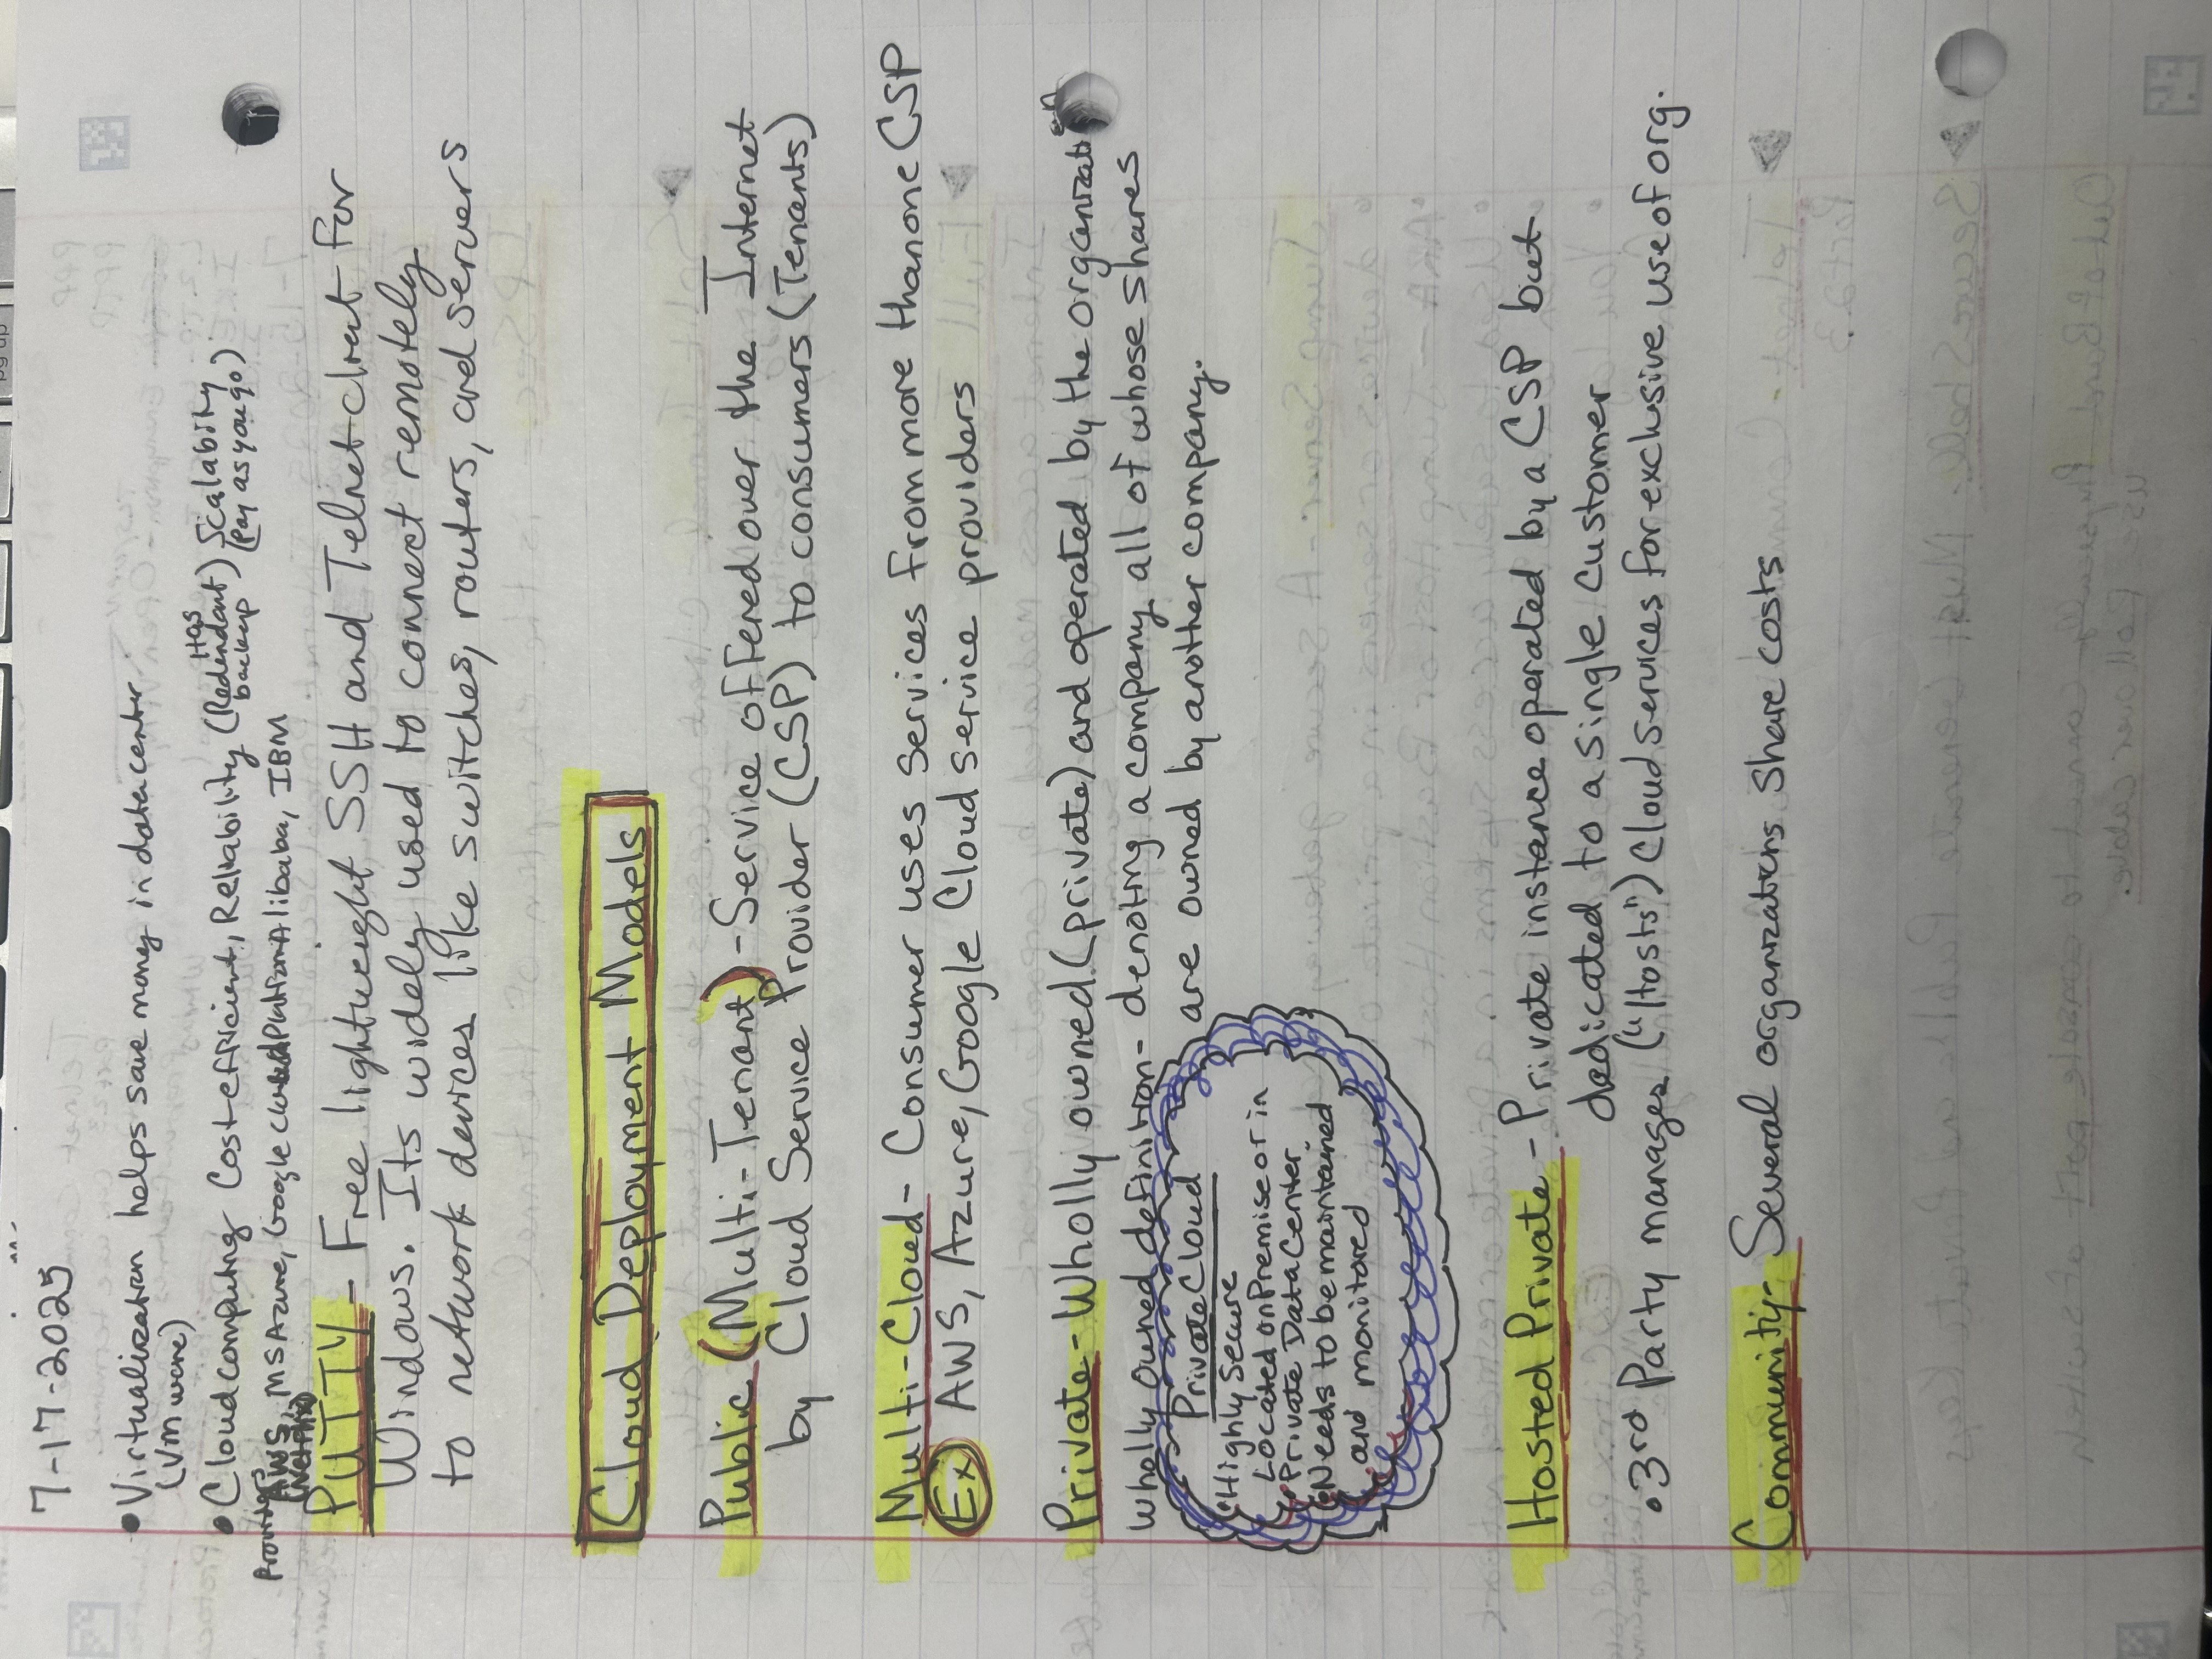 7-17-2025
• Virtualization helps save money in datacenter
(VMware)
• Cloudcomputing Costefficient, Reliability (Has Redendant backup) Scalabity (Pay as you go)
Providers
AWS, MSAzure, Google Cloud Platform Alibaba, IBM
(Netflix)
PUTTY - Free lightweight SSH and Telnet client for
Windows. Its widely used to connect remotely
to network devices like switches, routers, and servers
Cloud Deployment Models
Public (Multi-Tenant) - Service offered over the Internet
by Cloud Service Provider (CSP) to consumers (Tenants)
Multi-Cloud - Consumer uses services from more than one CSP
Ex AWS, Azure, Google Cloud service providers
Private - Wholly owned (private) and operated by the organization
wholly owned definition - denoting a company all of whose shares
are owned by another company.
Private Cloud
• Highly Secure
Located on Premise or in
• Private Data Center
• Needs to be maintained
and monitored
Hosted Private - Private instance operated by a CSP but
dedicated to a single customer
• 3rd Party manages ("Hosts") Cloud services for exclusive use of org.
Community - Several organizations share costs